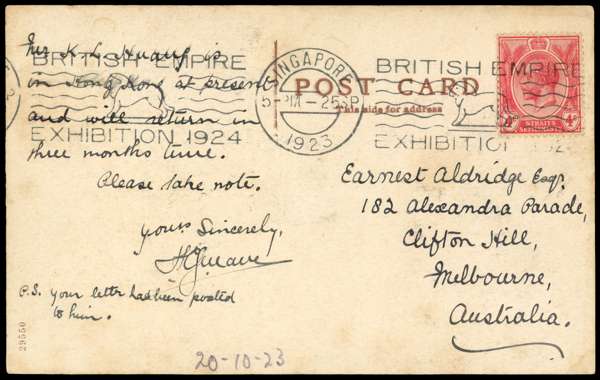 Mr K. L. Huang is
in Hong Kong at present
and will return in
three months time.
Please take note.
yours Sincerely,
P.S. your letter had been posted
to him.
29550
20-10-23
BRITISH EMPIRE
EXHIBITION 1924
SINGAPORE
1923
POST CARD
This side for address
BRITISH EMPIRE
EXHIBITION
STRAITS
SETTLEMENTS
4c
Earnest Aldridge Esq.
182 Alexandra Parade,
Clifton Hill,
Melbourne,
Australia.